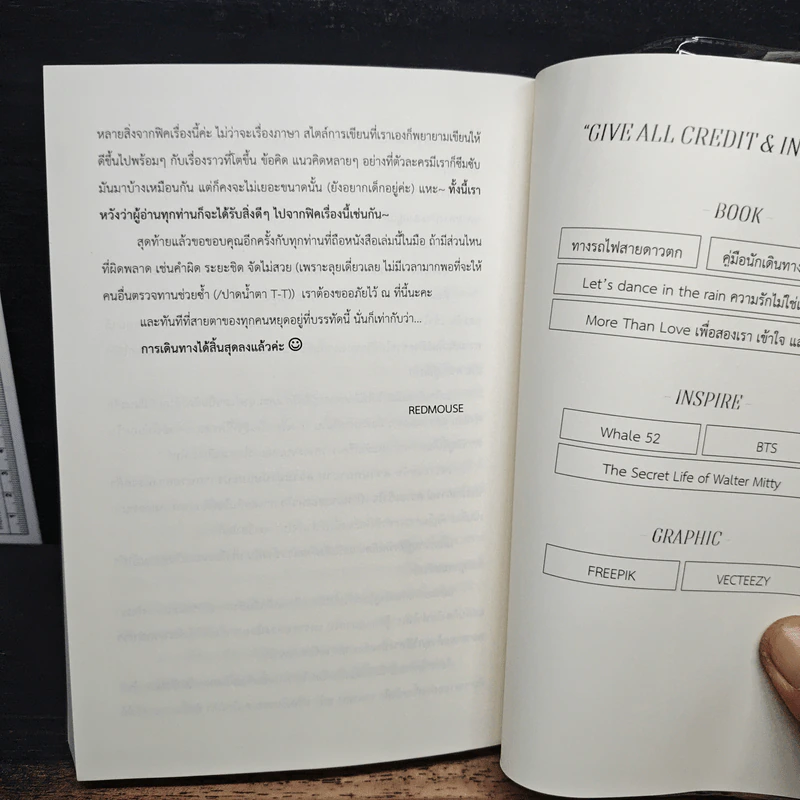 หลายสิ่งจากฟิคเรื่องนี้ค่ะ ไม่ว่าจะเรื่องภาษา สไตล์การเขียนที่เราเองก็พยายามเขียนให้
ดีขึ้นไปพร้อมๆ กับเรื่องราวที่โตขึ้น ข้อคิด แนวคิดหลายๆ อย่างที่ตัวละครมีเราก็ซึมซับ
มันมาบ้างเหมือนกัน แต่ก็คงจะไม่เยอะขนาดนั้น (ยังอยากเด็กอยู่ค่ะ) แหะ~ ทั้งนี้เรา
หวังว่าผู้อ่านทุกท่านก็จะได้รับสิ่งดีๆ ไปจากฟิคเรื่องนี้เช่นกัน~
สุดท้ายแล้วขอขอบคุณอีกครั้งกับทุกท่านที่ถือหนังสือเล่มนี้ในมือ ถ้ามีส่วนไหน
ที่ผิดพลาด เช่นคำผิด ระยะชิด จัดไม่สวย (เพราะลุยเดี่ยวเลย ไม่มีเวลามากพอที่จะให้
คนอื่นตรวจทานช่วยซ้ำ (/ปาดน้ำตา T-T)) เราต้องขออภัยไว้ ณ ที่นี้นะคะ
และทันทีที่สายตาของทุกคนหยุดอยู่ที่บรรทัดนี้ นั่นก็เท่ากับว่า...
การเดินทางได้สิ้นสุดลงแล้วค่ะ ☺
REDMOUSE
"GIVE ALL CREDIT & IN
BOOK
ทางรถไฟสายดาวตก
คู่มือนักเดินทาง
Let's dance in the rain ความรักไม่ใช่
More Than Love เพื่อสองเรา เข้าใจ แล
INSPIRE
Whale 52
BTS
The Secret Life of Walter Mitty
GRAPHIC
FREEPIK
VECTEEZY